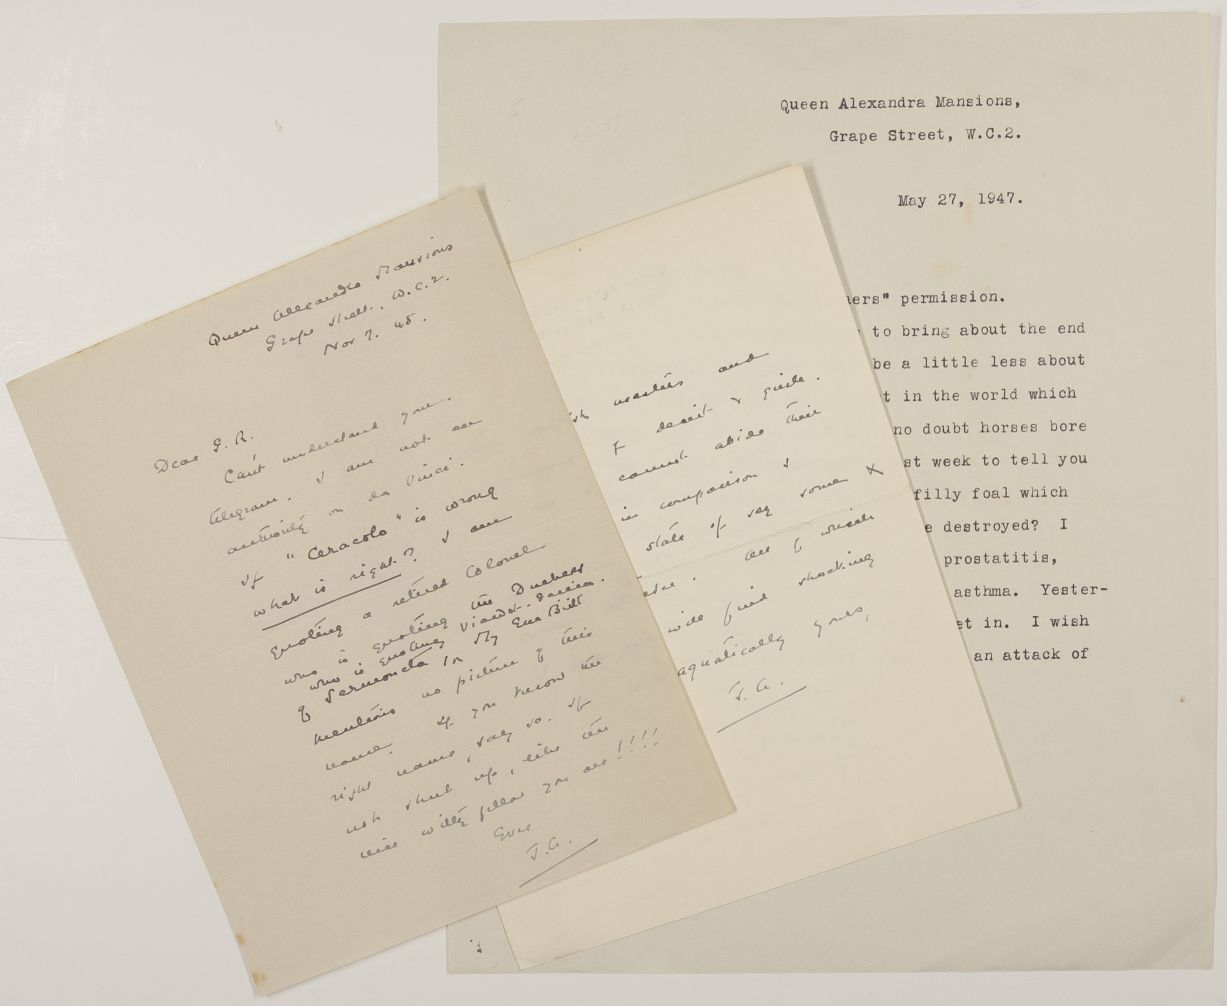 Queen Alexandra Mansions
Grape Street, W.C.2.
Nov 7. 45.
Dear G. R.
Can't understand your
telegram. I am not an
authority on da Vinci.
If "Ceracolo" is wrong
what is right? I am
quoting a retired Colonel
who is quoting the Duchess
who is quoting
of Sermoneta in My
mentions no picture of this
name. If you know the
right name, say so. If
not shut up, like the
nice witty fellow you are!!!!
Ever
J.A.
and
to deceit & guile.
cannot abide their
in comparison &
state of say some X
All of which
will find shocking
aquatically yours,
J.A.
Queen Alexandra Mansions,
Grape Street, W.C.2.
May 27, 1947.
ers" permission.
to bring about the end
be a little less about
t in the world which
no doubt horses bore
st week to tell you
filly foal which
e destroyed? I
prostatitis,
asthma. Yester-
et in. I wish
an attack of